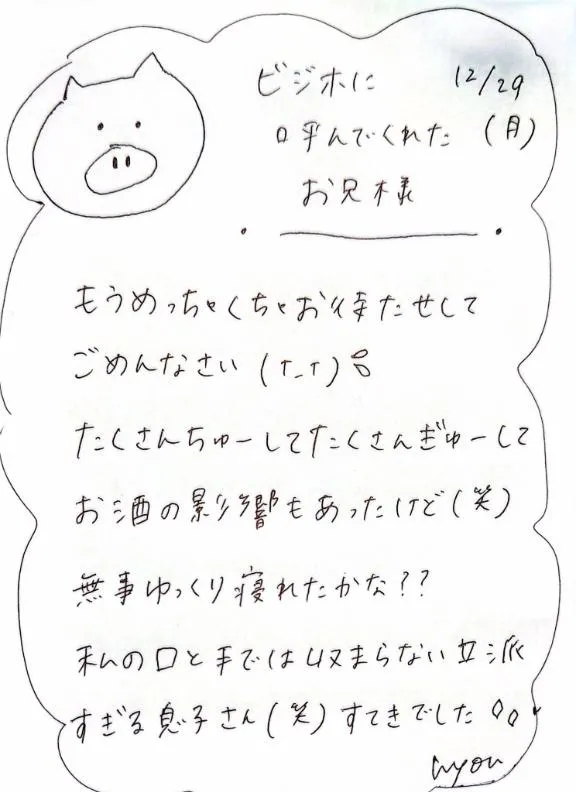 ビジホに 12/29
呼んでくれた (月)
お兄様
もうめっちゃくちゃお待たせして
ごめんなさい (T_T)
たくさんちゅーしてたくさんぎゅーして
お酒の影響もあったけど (笑)
無事ゆっくり寝れたかな??
私の口と手では収まらない立派
すぎる息子さん (笑) すてきでした